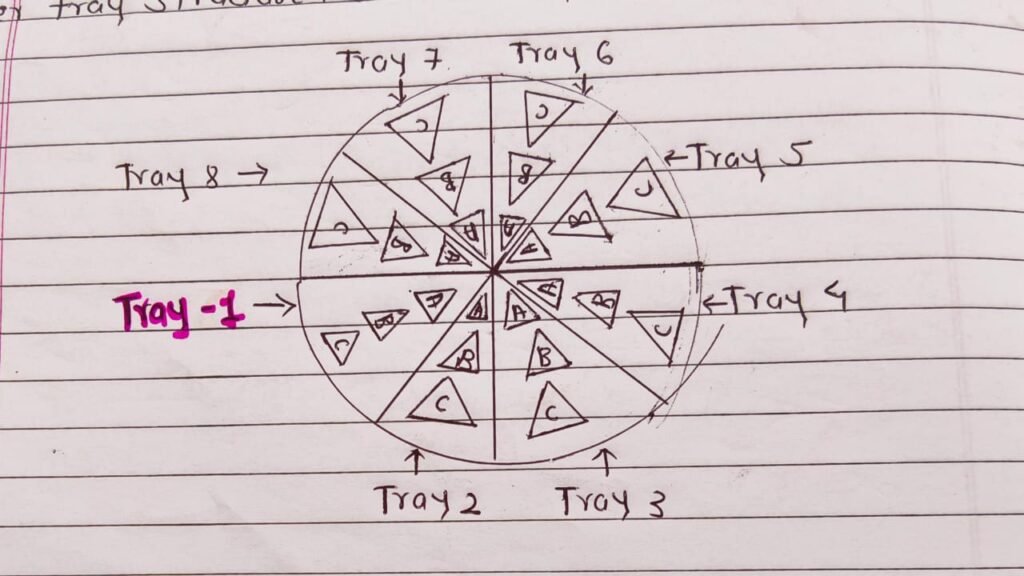 Tray
Tray 7
Tray 6
C
C
Tray 8
B
B
Tray 5
C
B
A
A
B
C
A
A
Tray-1
A
A
A
A
B
Tray 4
C
B
B
B
C
C
C
Tray 2
Tray 3